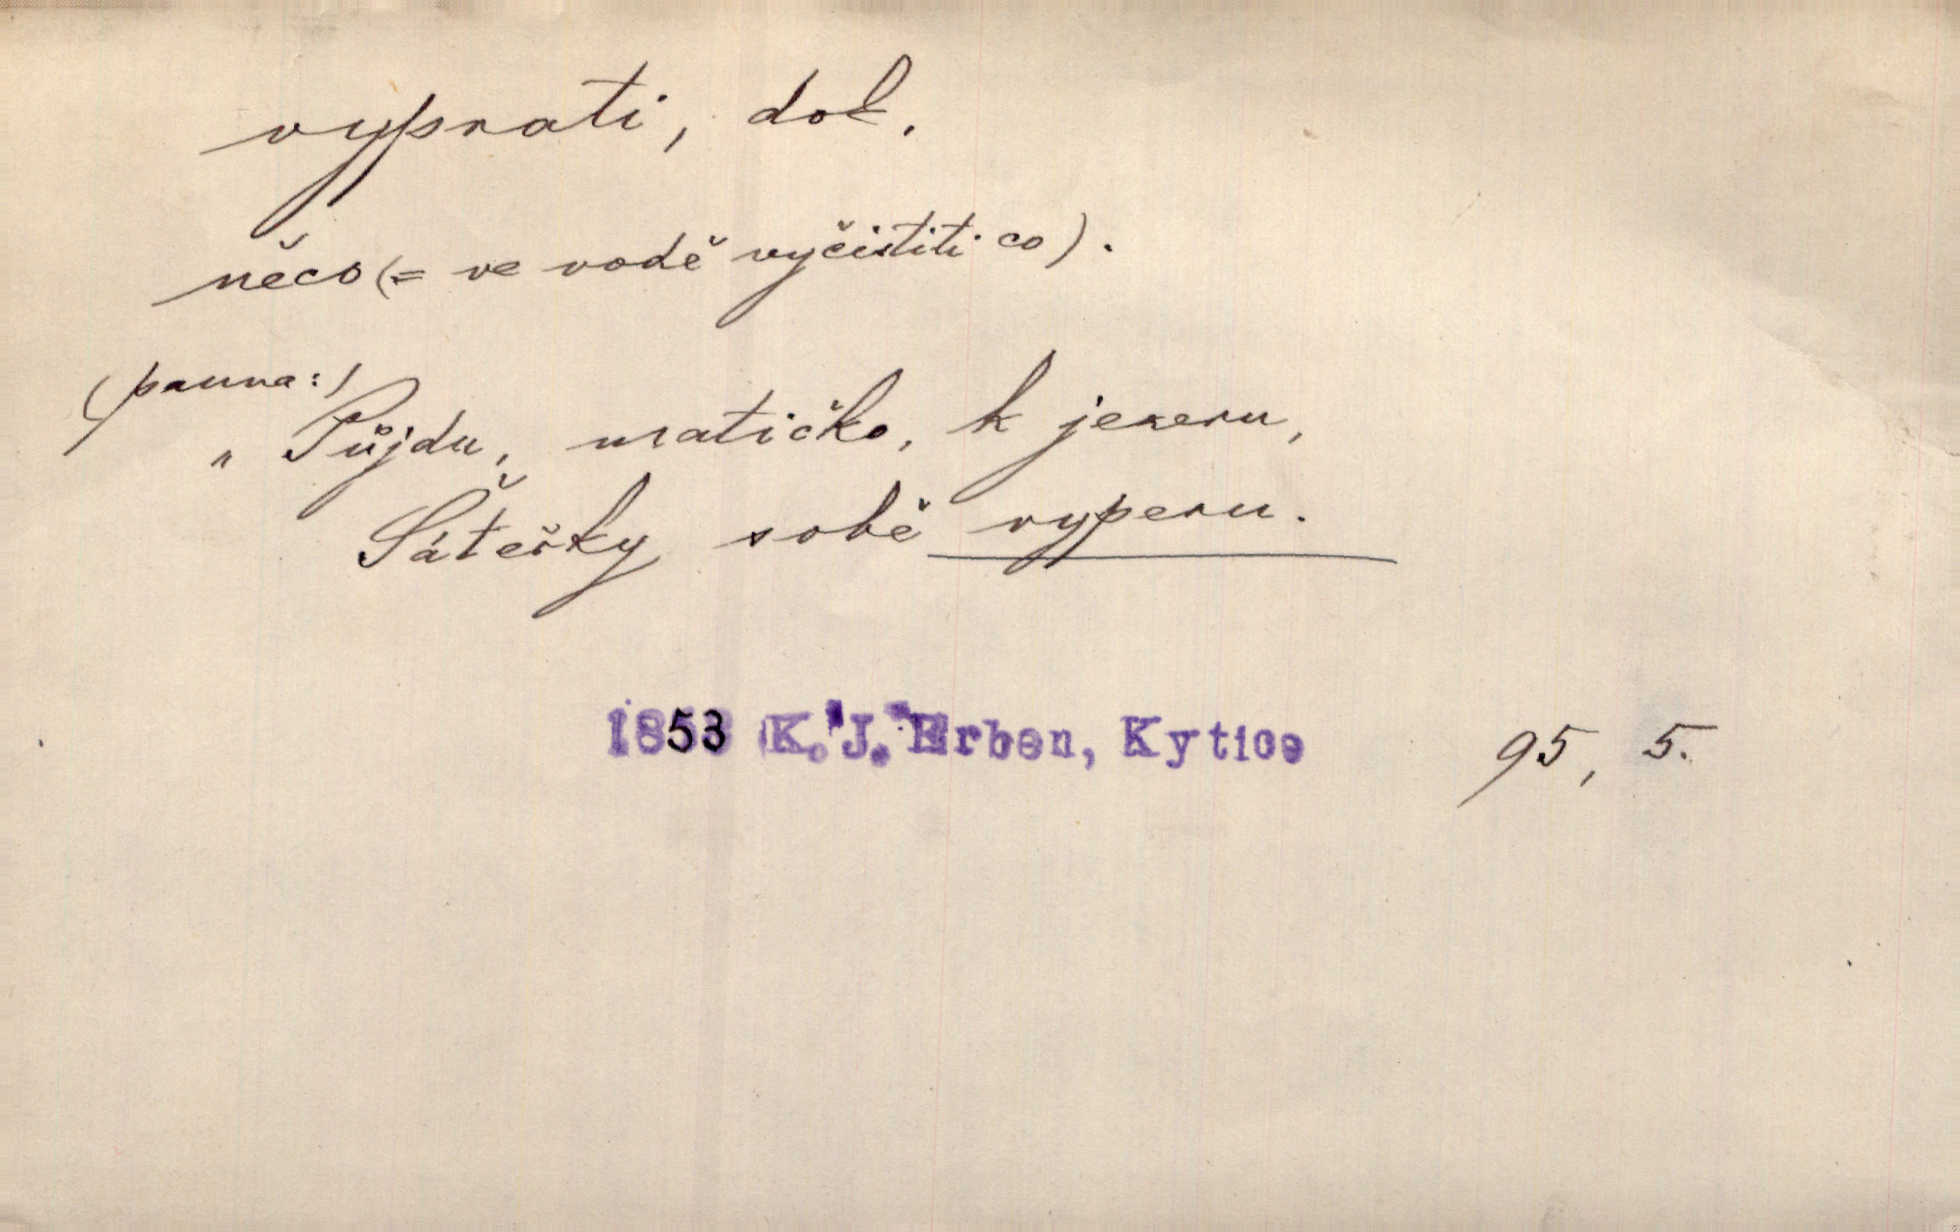 vyprati, dok.
něco (= ve vodě vyčistiti co).
(panna:)
„Půjdu, matičko, k jezeru,
Šátečky sobě vyperu.
1853 K. J. Erben, Kytice 95, 5.